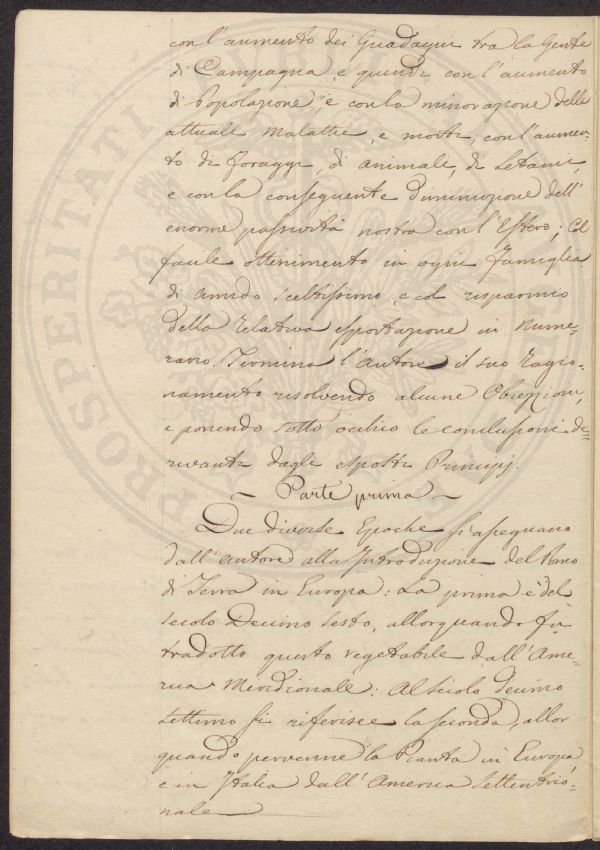 con l'aumento dei Guadagni tra la Gente
di Campagna, e quindi con l'aumento
di Popolazione, e con la minorazione delle
attuale malattie, e morti, con l'aumen-
to di foraggi, di animale, di Letami,
e con la conseguente diminuzione dell'
enorme passività nostra con l'Estero; Col
facile ottenimento in ogni famiglia
di amido sceltissimo, e col risparmio
della relativa esportazione in nume-
rario. Termina l'autore il suo Ragio-
namento risolvendo alcune Obiezzioni,
e ponendo sotto occhio le conclusioni de-
rivanti dagli esposti Principj.
~ Parte prima ~
Due diverse Epoche si assegnano
dall'autore alla Introduzione del Pomo
di Terra in Europa: La prima è del
secolo Decimo Sesto, allorquando fù
tradotto questo vegetabile dall'Ame-
rica Meridionale: Al Secolo Decimo
settimo si riferisce la seconda, allor
quando pervenne la Pianta in Europa
e in Italia dall'America Settentrio-
nale
PROSPERITATI